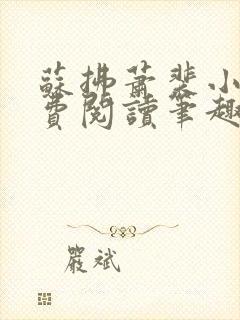 蘇拂蕭裴小
費閱讀筆趣
嚴斌